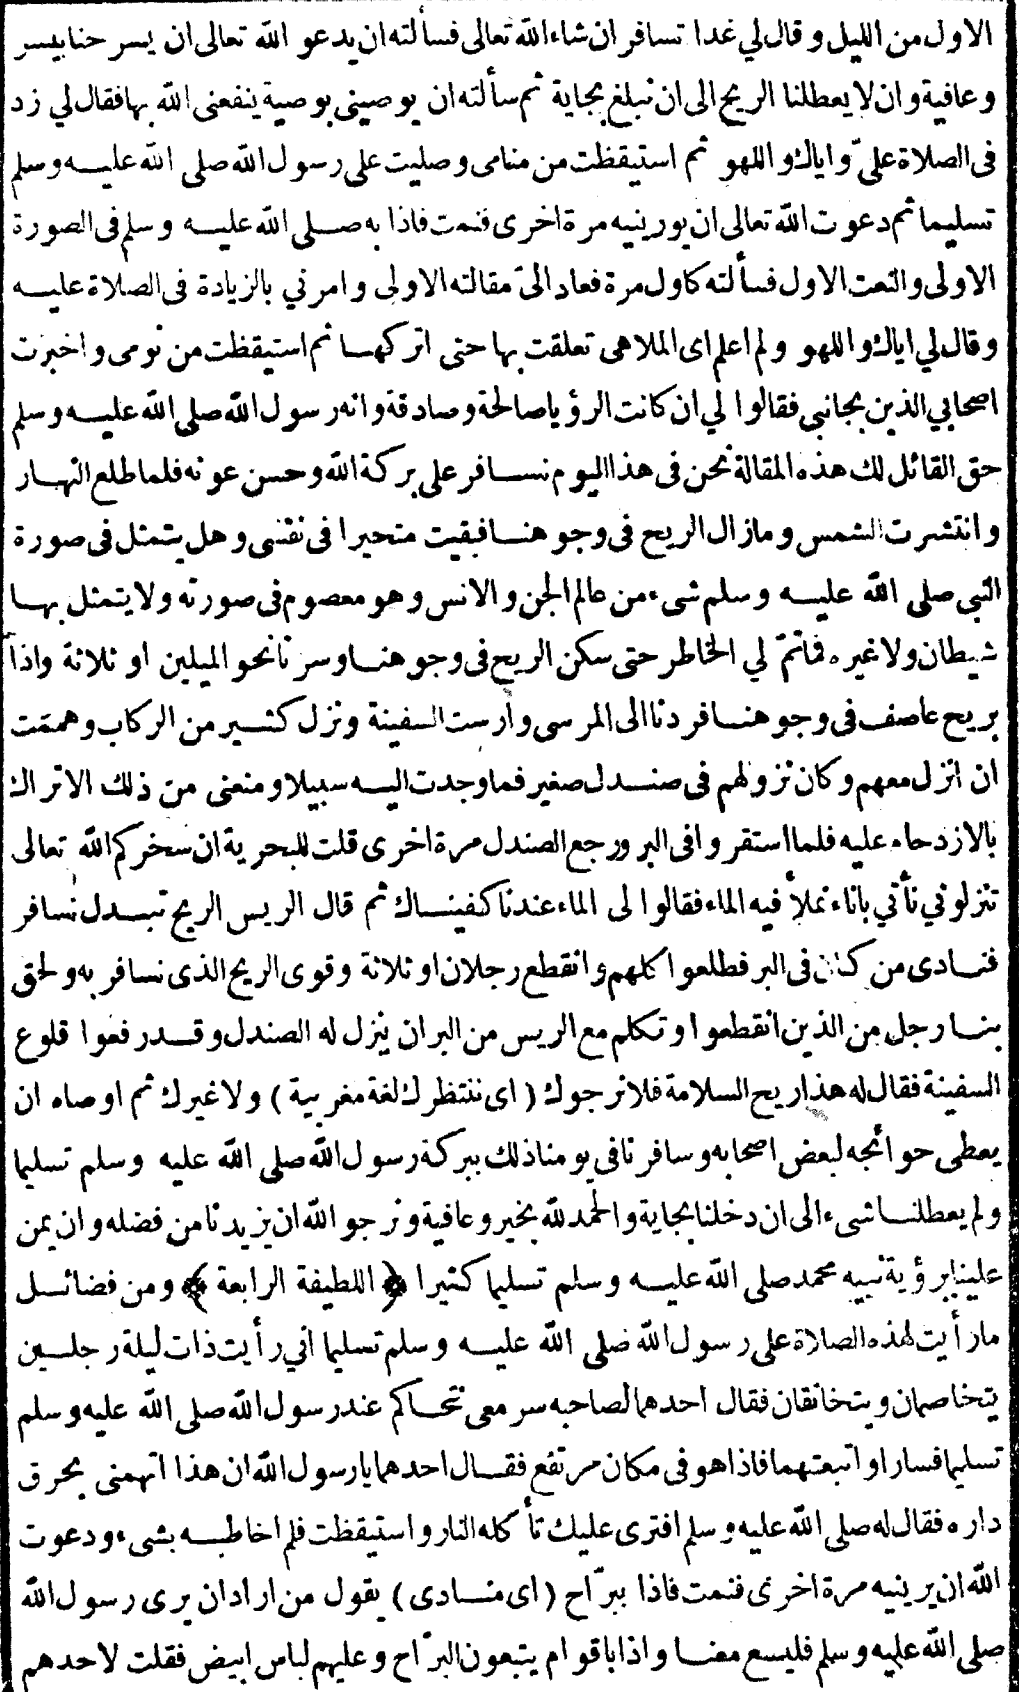 الاول من الليل وقال لي غدا تسافر ان شاء الله تعالى فسألته ان يدعو الله تعالى ان يسرحنا بيسر
وعافية وان لا يعطلنا الريح الى ان نبلغ بجاية ثم سألته ان يوصيني بوصية ينفعنى الله بها فقال لي زد
فى الصلاة علىّ واياك واللهو ثم استيقظت من منامى وصليت على رسول الله صلى الله عليه وسلم
تسليما ثم دعوت الله تعالى ان يورينيه مرة اخرى فنمت فاذا به صلى الله عليه وسلم فى الصورة
الاولى والنعت الاول فسألته كاول مرة فعاد الىّ مقالته الاولى وامرني بالزيادة فى الصلاة عليه
وقال لي اياك واللهو ولم اعلم اى الملاهى تعلقت بها حتى اتركها ثم استيقظت من نومى واخبرت
اصحابي الذين بجانبى فقالوا لي ان كانت الرؤيا صالحة وصادقة وانه رسول الله صلى الله عليه وسلم
حق القائل لك هذه المقالة نحن فى هذا اليوم نسافر على بركة الله وحسن عونه فلما طلع النهار
وانتشرت الشمس ومازال الريح فى وجوهنا فبقيت متحيرا فى نفسى وهل يتمثل فى صورة
النبى صلى الله عليه وسلم شىء من عالم الجن والانس وهو معصوم فى صورته ولا يتمثل بها
شيطان ولا غيره فماتمّ لي الخاطر حتى سكن الريح فى وجوهنا وسرنا نحو الميلين او ثلاثة واذا
بريح عاصف فى وجوهنا فردنا الى المرسى وأرست السفينة ونزل كثير من الركاب وهممت
ان انزل معهم وكان نزولهم فى صندل صغير فما وجدت اليه سبيلا ومنعنى من ذلك الاتراك
بالازدحام عليه فلما استقروا فى البر ورجع الصندل مرة اخرى قلت للبحرية ان سخركم الله تعالى
تنزلوني نأتي باناء نملأ فيه الماء فقالوا لى الماء عندنا كفيناك ثم قال الريس الريح تبدل نسافر
فنادى من كان فى البر فطلعوا كلهم وانقطع رجلان او ثلاثة وقوى الريح الذى نسافر به ولحق
بنا رجل من الذين انقطعوا وتكلم مع الريس من البر ان ينزل له الصندل وقد رفعوا قلوع
السفينة فقال له هذا ريح السلامة فلا نرجوك (اى ننتظرك لغة مغربية) ولا غيرك ثم اوصاه ان
يعطى حوائجه لبعض اصحابه وسافرنا فى يومنا ذلك ببركة رسول الله صلى الله عليه وسلم تسليما
ولم يعطلنا شىء الى ان دخلنا بجاية والحمد لله بخير وعافية ونرجو الله ان يزيدنا من فضله وان يمن
علينا برؤية نبيه محمد صلى الله عليه وسلم تسليما كثيرا ﴿ اللطيفة الرابعة ﴾ ومن فضائل
ما رأيت لهذه الصلاة على رسول الله صلى الله عليه وسلم تسليما اني رأيت ذات ليلة رجلين
يتخاصمان ويتخانقان فقال احدهما لصاحبه سر معى نتحاكم عند رسول الله صلى الله عليه وسلم
تسليما فسارا واتبعتهما فاذا هو فى مكان مرتفع فقال احدهما يا رسول الله ان هذا اتهمنى بحرق
داره فقال له صلى الله عليه وسلم افترى عليك تأكله النار واستيقظت فلم اخاطبه بشىء ودعوت
الله ان يرينيه مرة اخرى فنمت فاذا ببرّاح (اى منادى) يقول من اراد ان يرى رسول الله
صلى الله عليه وسلم فليسع معنا واذا باقوام يتبعون البرّاح وعليهم لباس ابيض فقلت لاحدهم